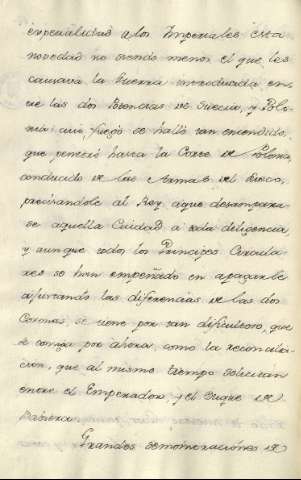 expecialidad a los Imperiales esta
novedad no siendo menor el que les
causava la Guerra introducida en-
tre las dos Potencias de Suecia, y Polo-
nia; cuio fuego se halló tan encendido,
que penetró hasta la Corte de Polonia,
conducido de las Armas del Sueco,
precisandole al Rey, a que desamparase
aquella Ciudad a toda diligencia
y aunque todos los Principes Circula-
res se han empeñado en apagarle
ajustando las diferencias de las dos
Coronas, se tiene por tan dificultoso, que
se consiga por ahora, como la reconcilia-
cion, que al mismo tiempo solicitan
entre el Emperador, y el Duque de
Baviera.
Grandes demonstraciones de